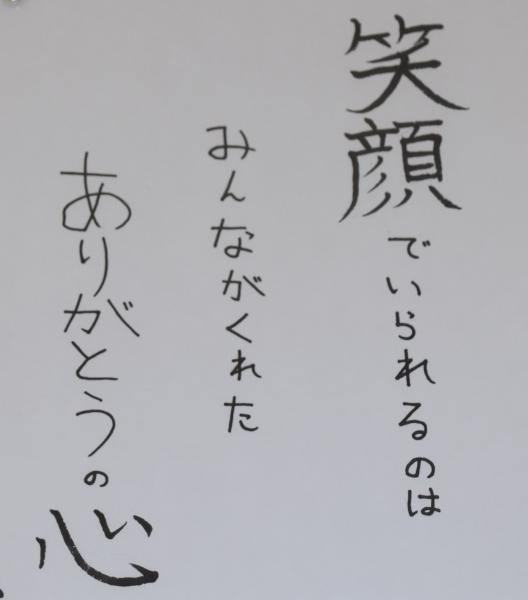 笑顔でいられるのは
みんながくれた
ありがとうの心